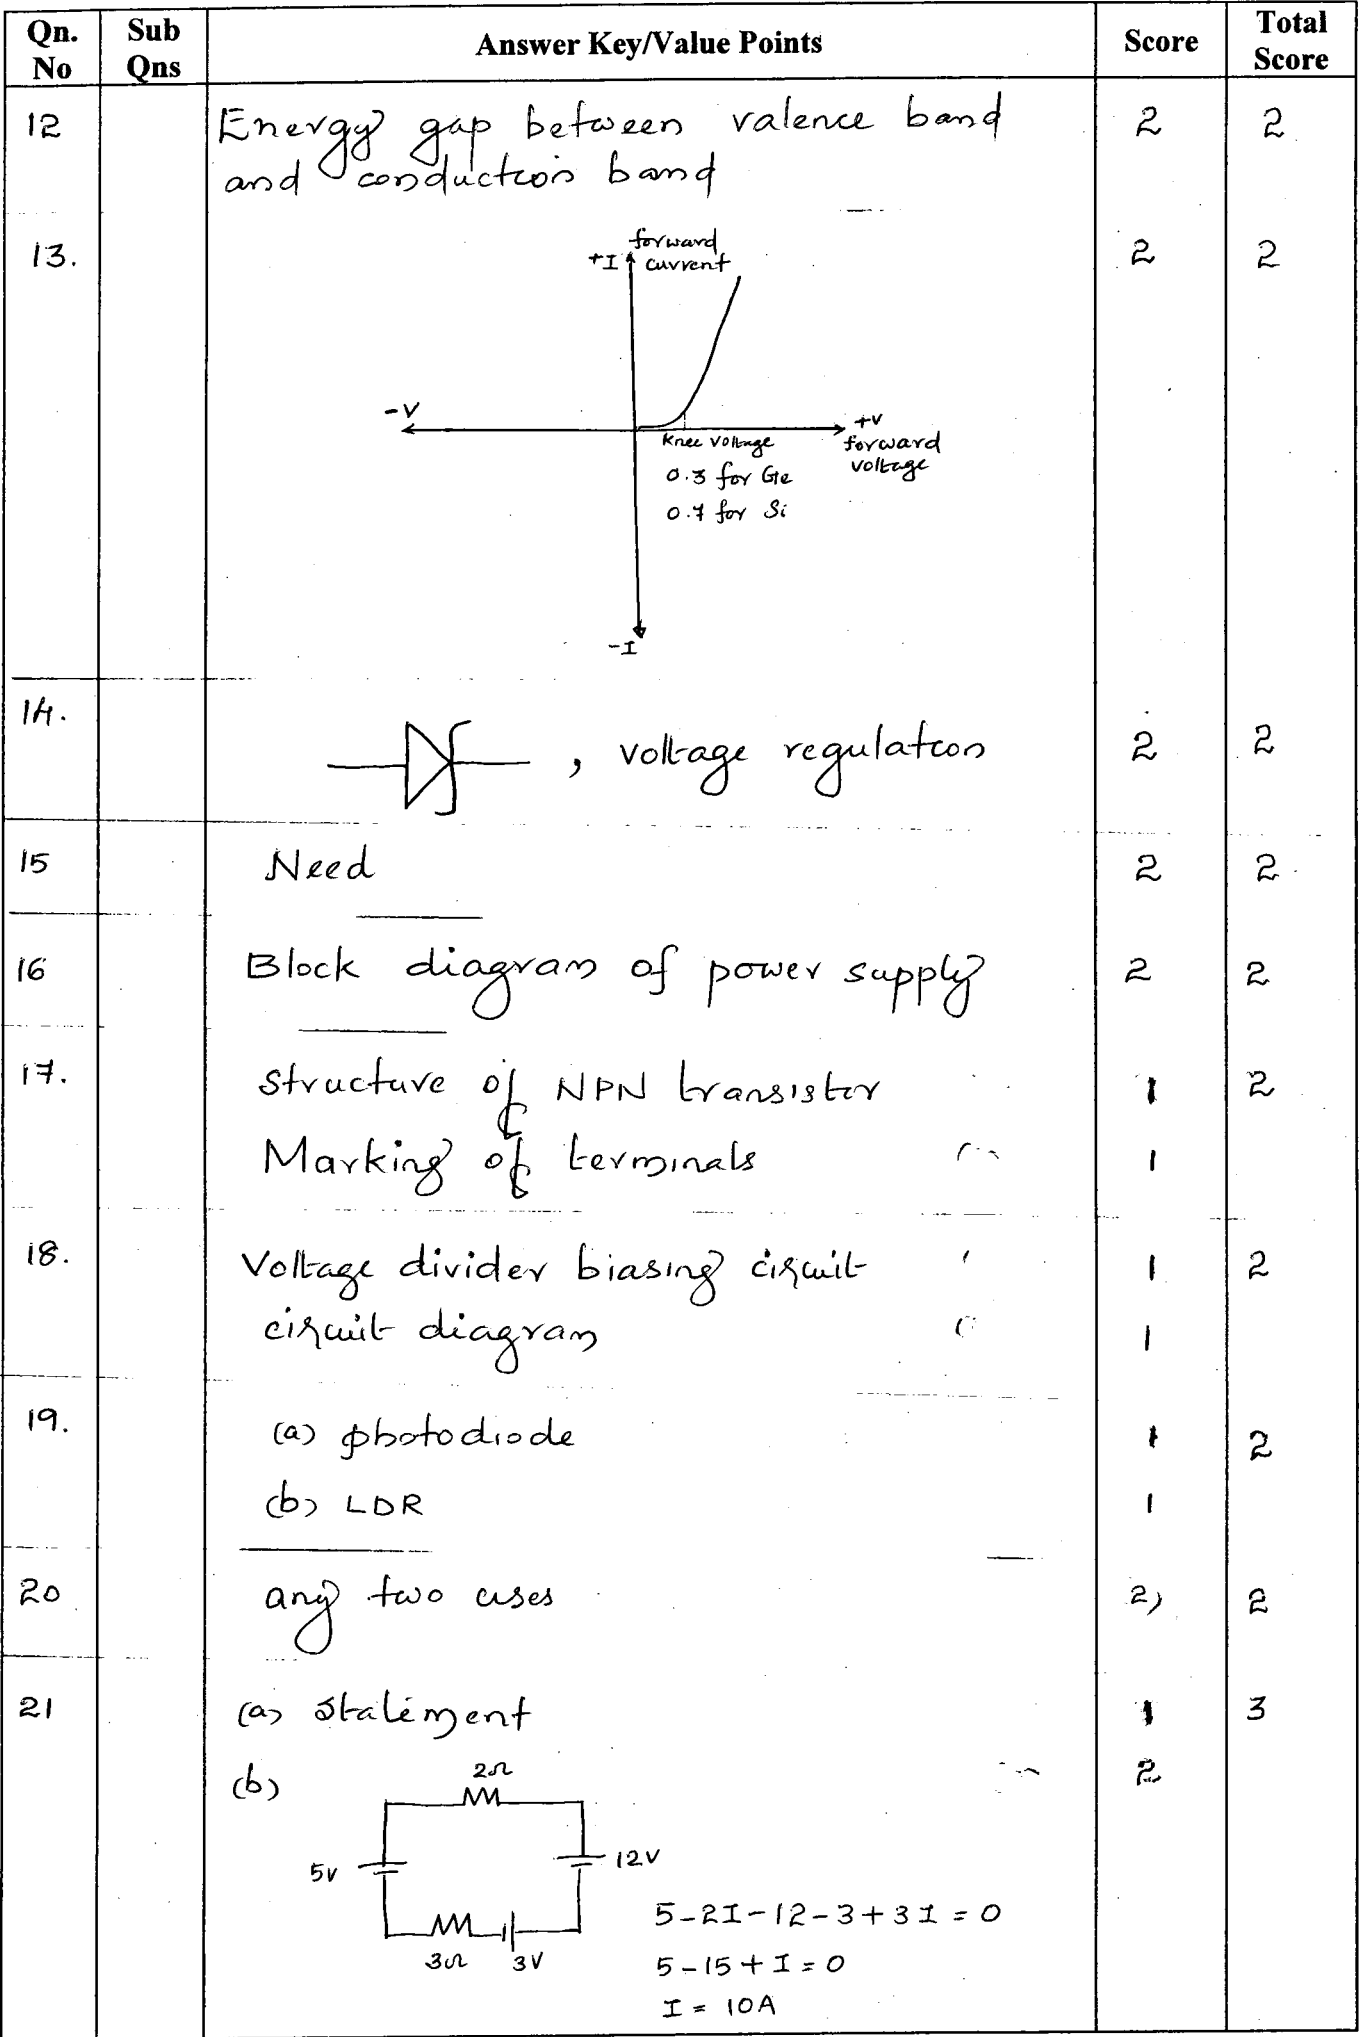 Qn. No Sub Qns Answer Key/Value Points Score Total Score
12 Energy gap between valence band 2 2
and conduction band
13. 2 2
forward
+I current
-V +V
Knee voltage forward
0.3 for Ge voltage
0.7 for Si
-I
14. , voltage regulation 2 2
15 Need 2 2
16 Block diagram of power supply 2 2
17. Structure of NPN transistor 1 2
Marking of terminals 1
18. Voltage divider biasing circuit 1 2
circuit diagram 1
19. (a) photodiode 1 2
(b) LDR 1
20 any two uses 2) 2
21 (a) Statement 1 3
(b) 2
2Ω
5V 12V
3Ω 3V
5-2I-12-3+3I=0
5-15+I=0
I = 10A